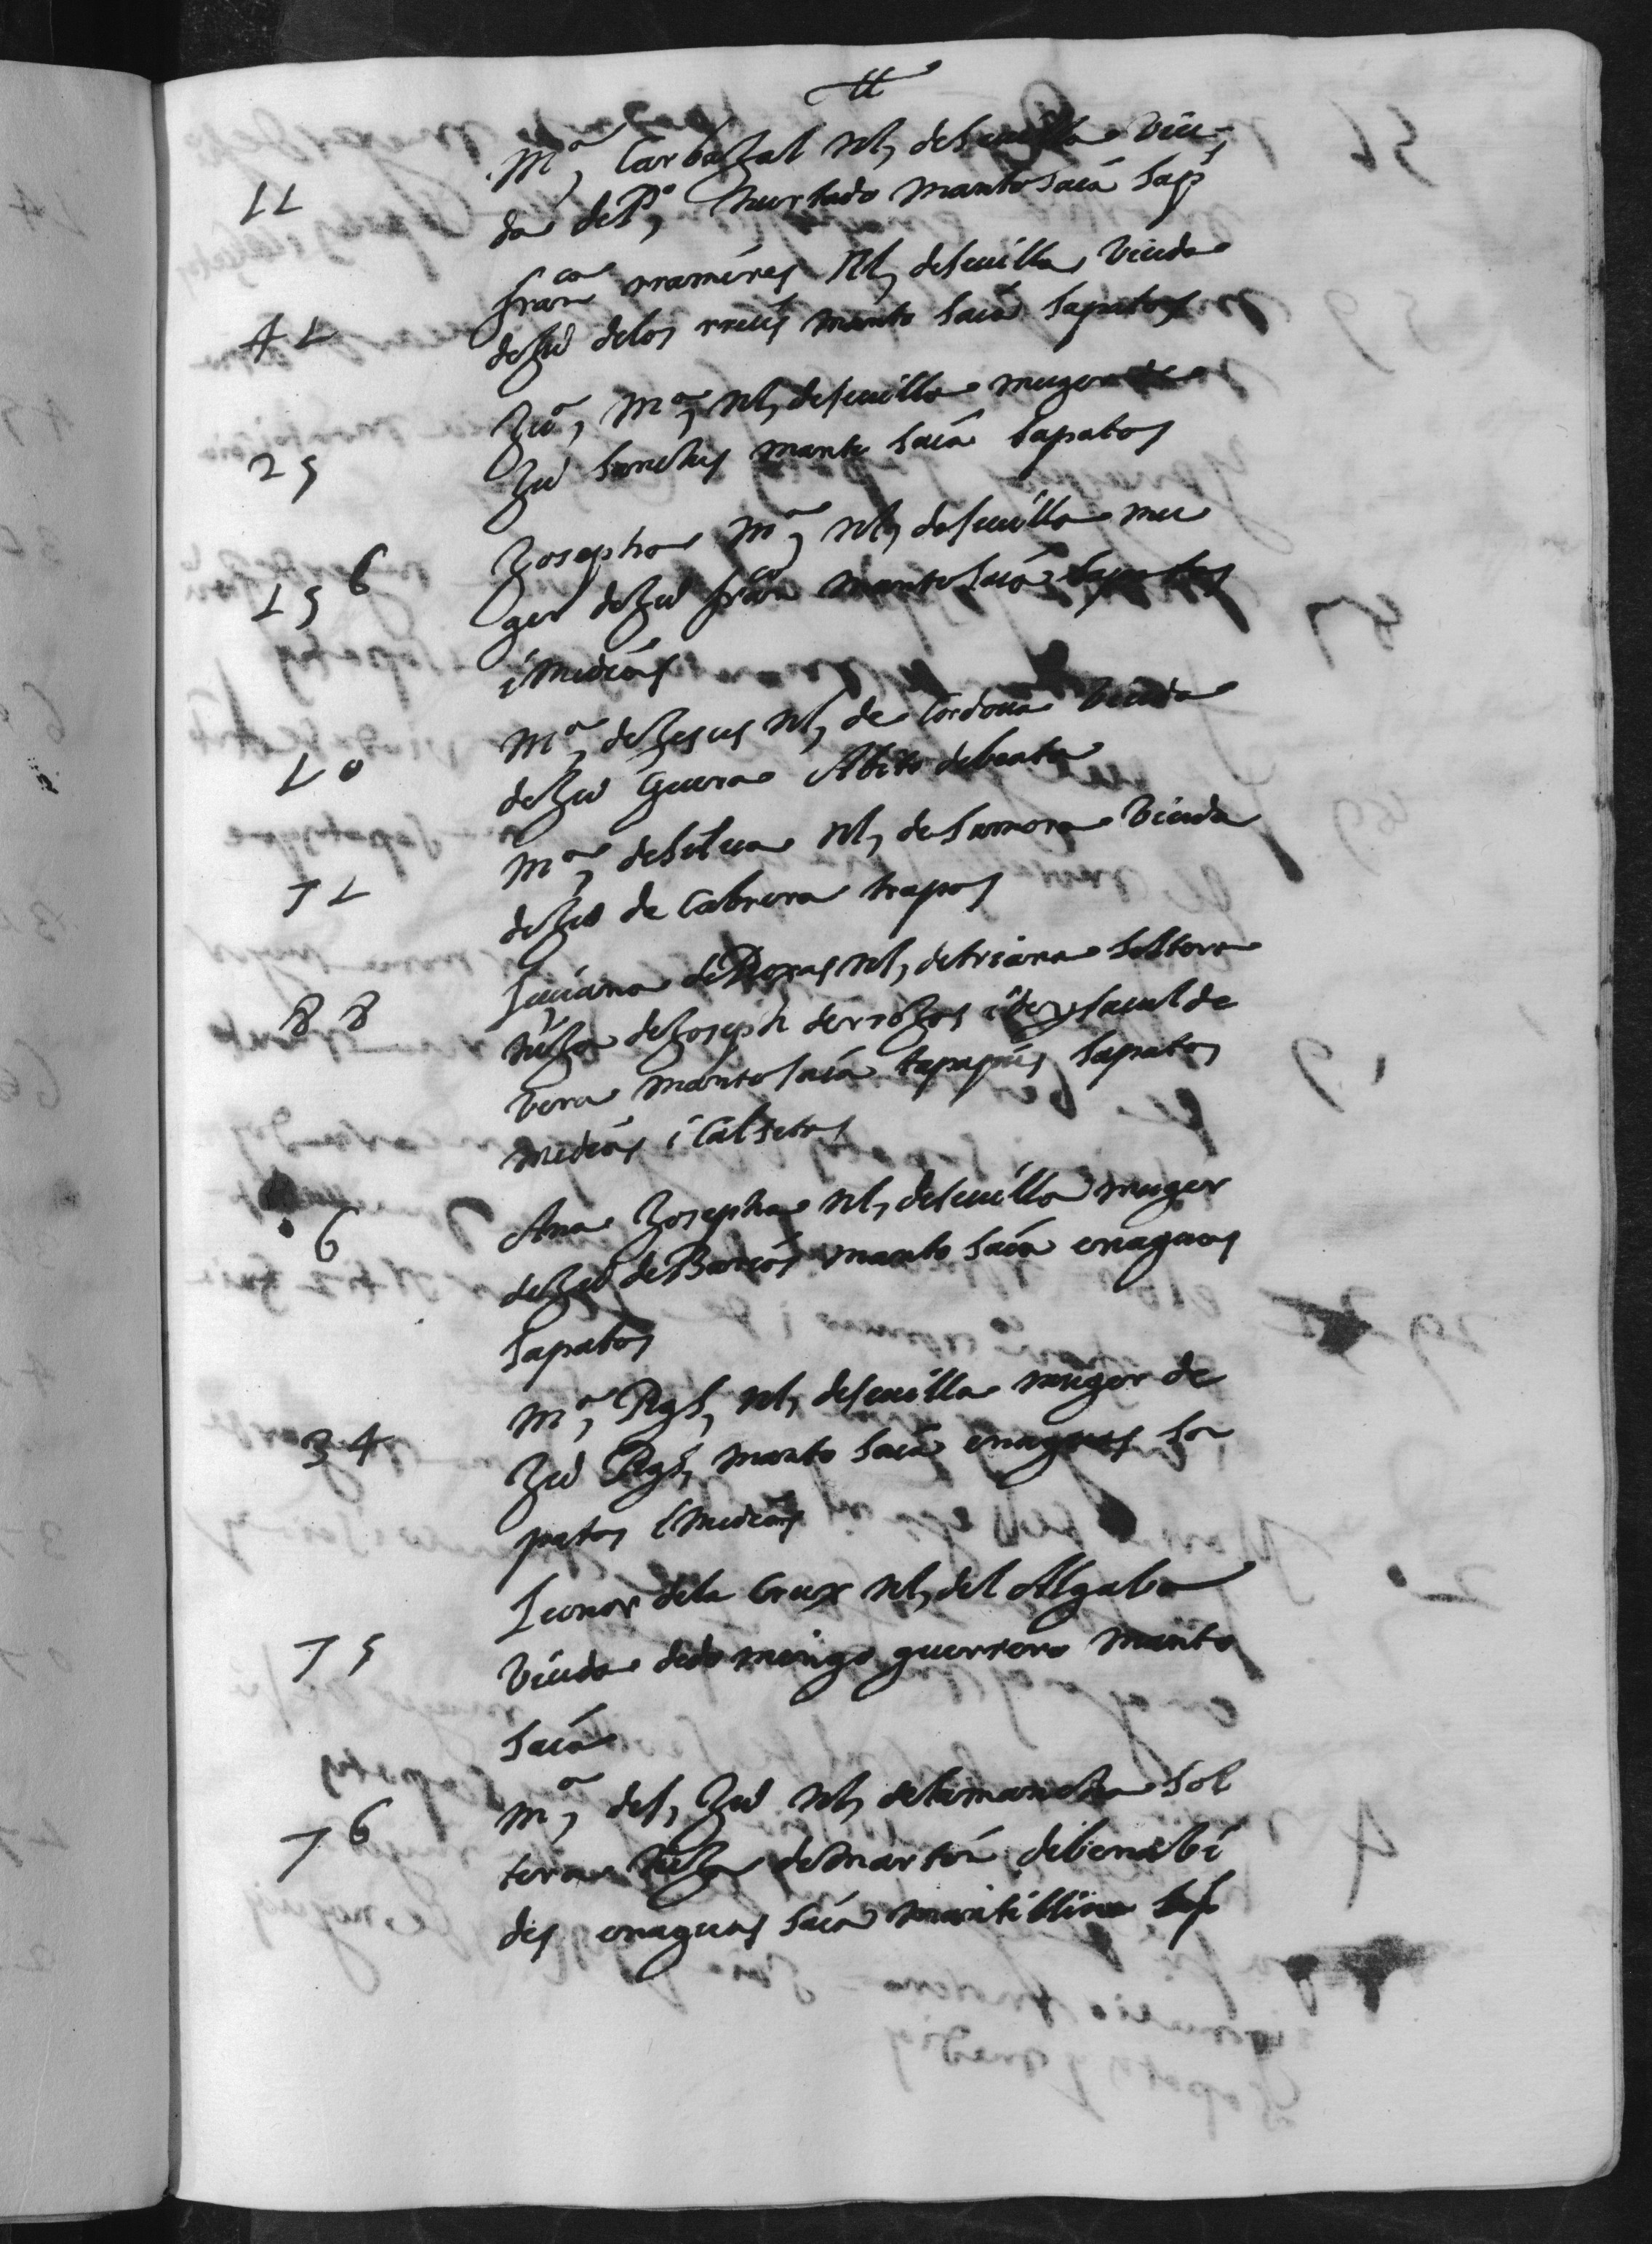 M.ª Carbaxal Nl, de seuilla viu-
11
da de P.º hurtado manto saia sap.s
fran.ca rramires Nl, de seuilla viuda
41
de Ju.º de los rreies manto saia sapatos
Ju.ª M.ª Nl, de seuilla muger de
25
Ju.º sanches manto saia sapatos
Josepha M.ª Nl, de seuilla mu
156
ger de Ju.º fran.co manto saia sapatos
i medias
M.ª de Jesus Nl, de Cordoua viuda
10
de Ju.º Guera Abito de beata
M.ª de silua Nl, de samora viuda
71
de Ju.º de Cabrera trapos
Luciana de Roxas Nl, de triana soltera
88
hija de Joseph de rrojas i de ysauel de
vera manto saia tapapies sapatos
medias i Calsetas
Ana Josepha Nl, de seuilla muger
6
de Ju.º de Barios manto saia enaguas
sapatos
M.ª Rgs, Nl, de seuilla muger de
34
Ju.º Rgs, manto saia enaguas sa
patos i medias
Leonor de la Crux Nl, del Algaba
75
viuda de domingo guerrero manto
saia
M.ª de s, Ju.º Nl, de la mancha sol
76
tera hija de martin de bena bi
des enaguas saia mantillina sap.s